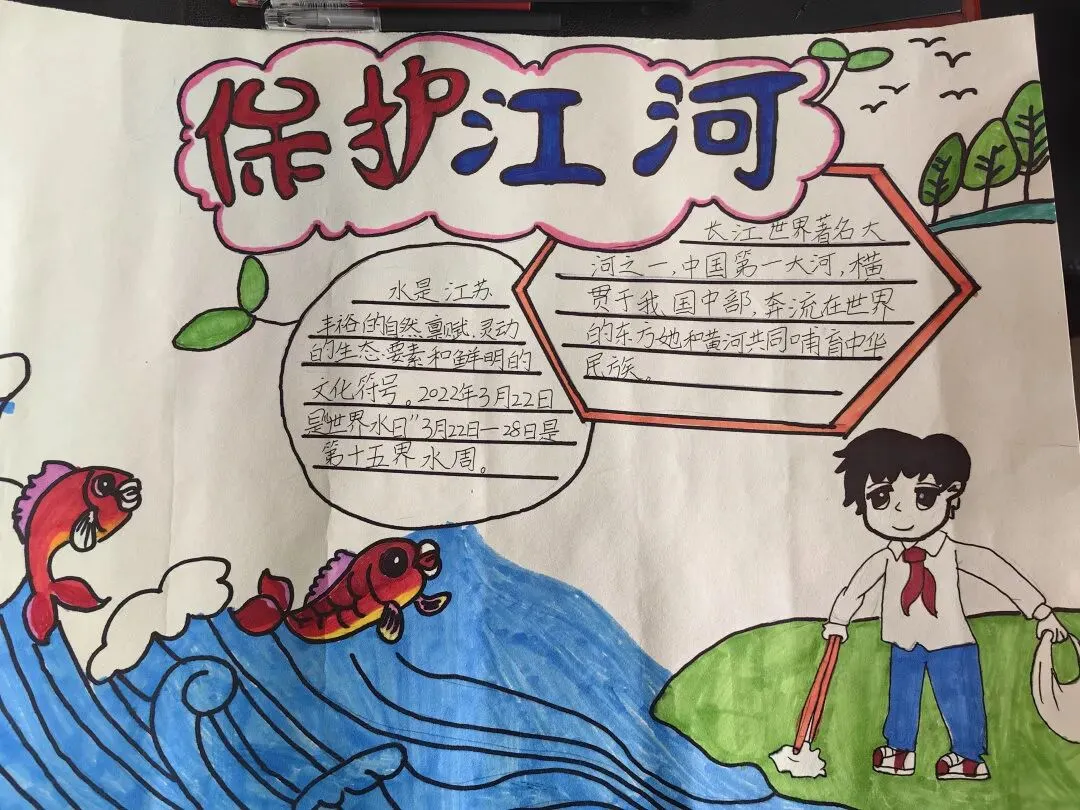 保护江河
水是江苏
丰裕的自然禀赋、灵动
的生态要素和鲜明的
文化符号。2022年3月22日
是“世界水日”3月22日—28日是
第十五界水周。
长江世界著名大
河之一,中国第一大河,横
贯于我国中部,奔流在世界
的东方她和黄河共同哺育中华
民族。